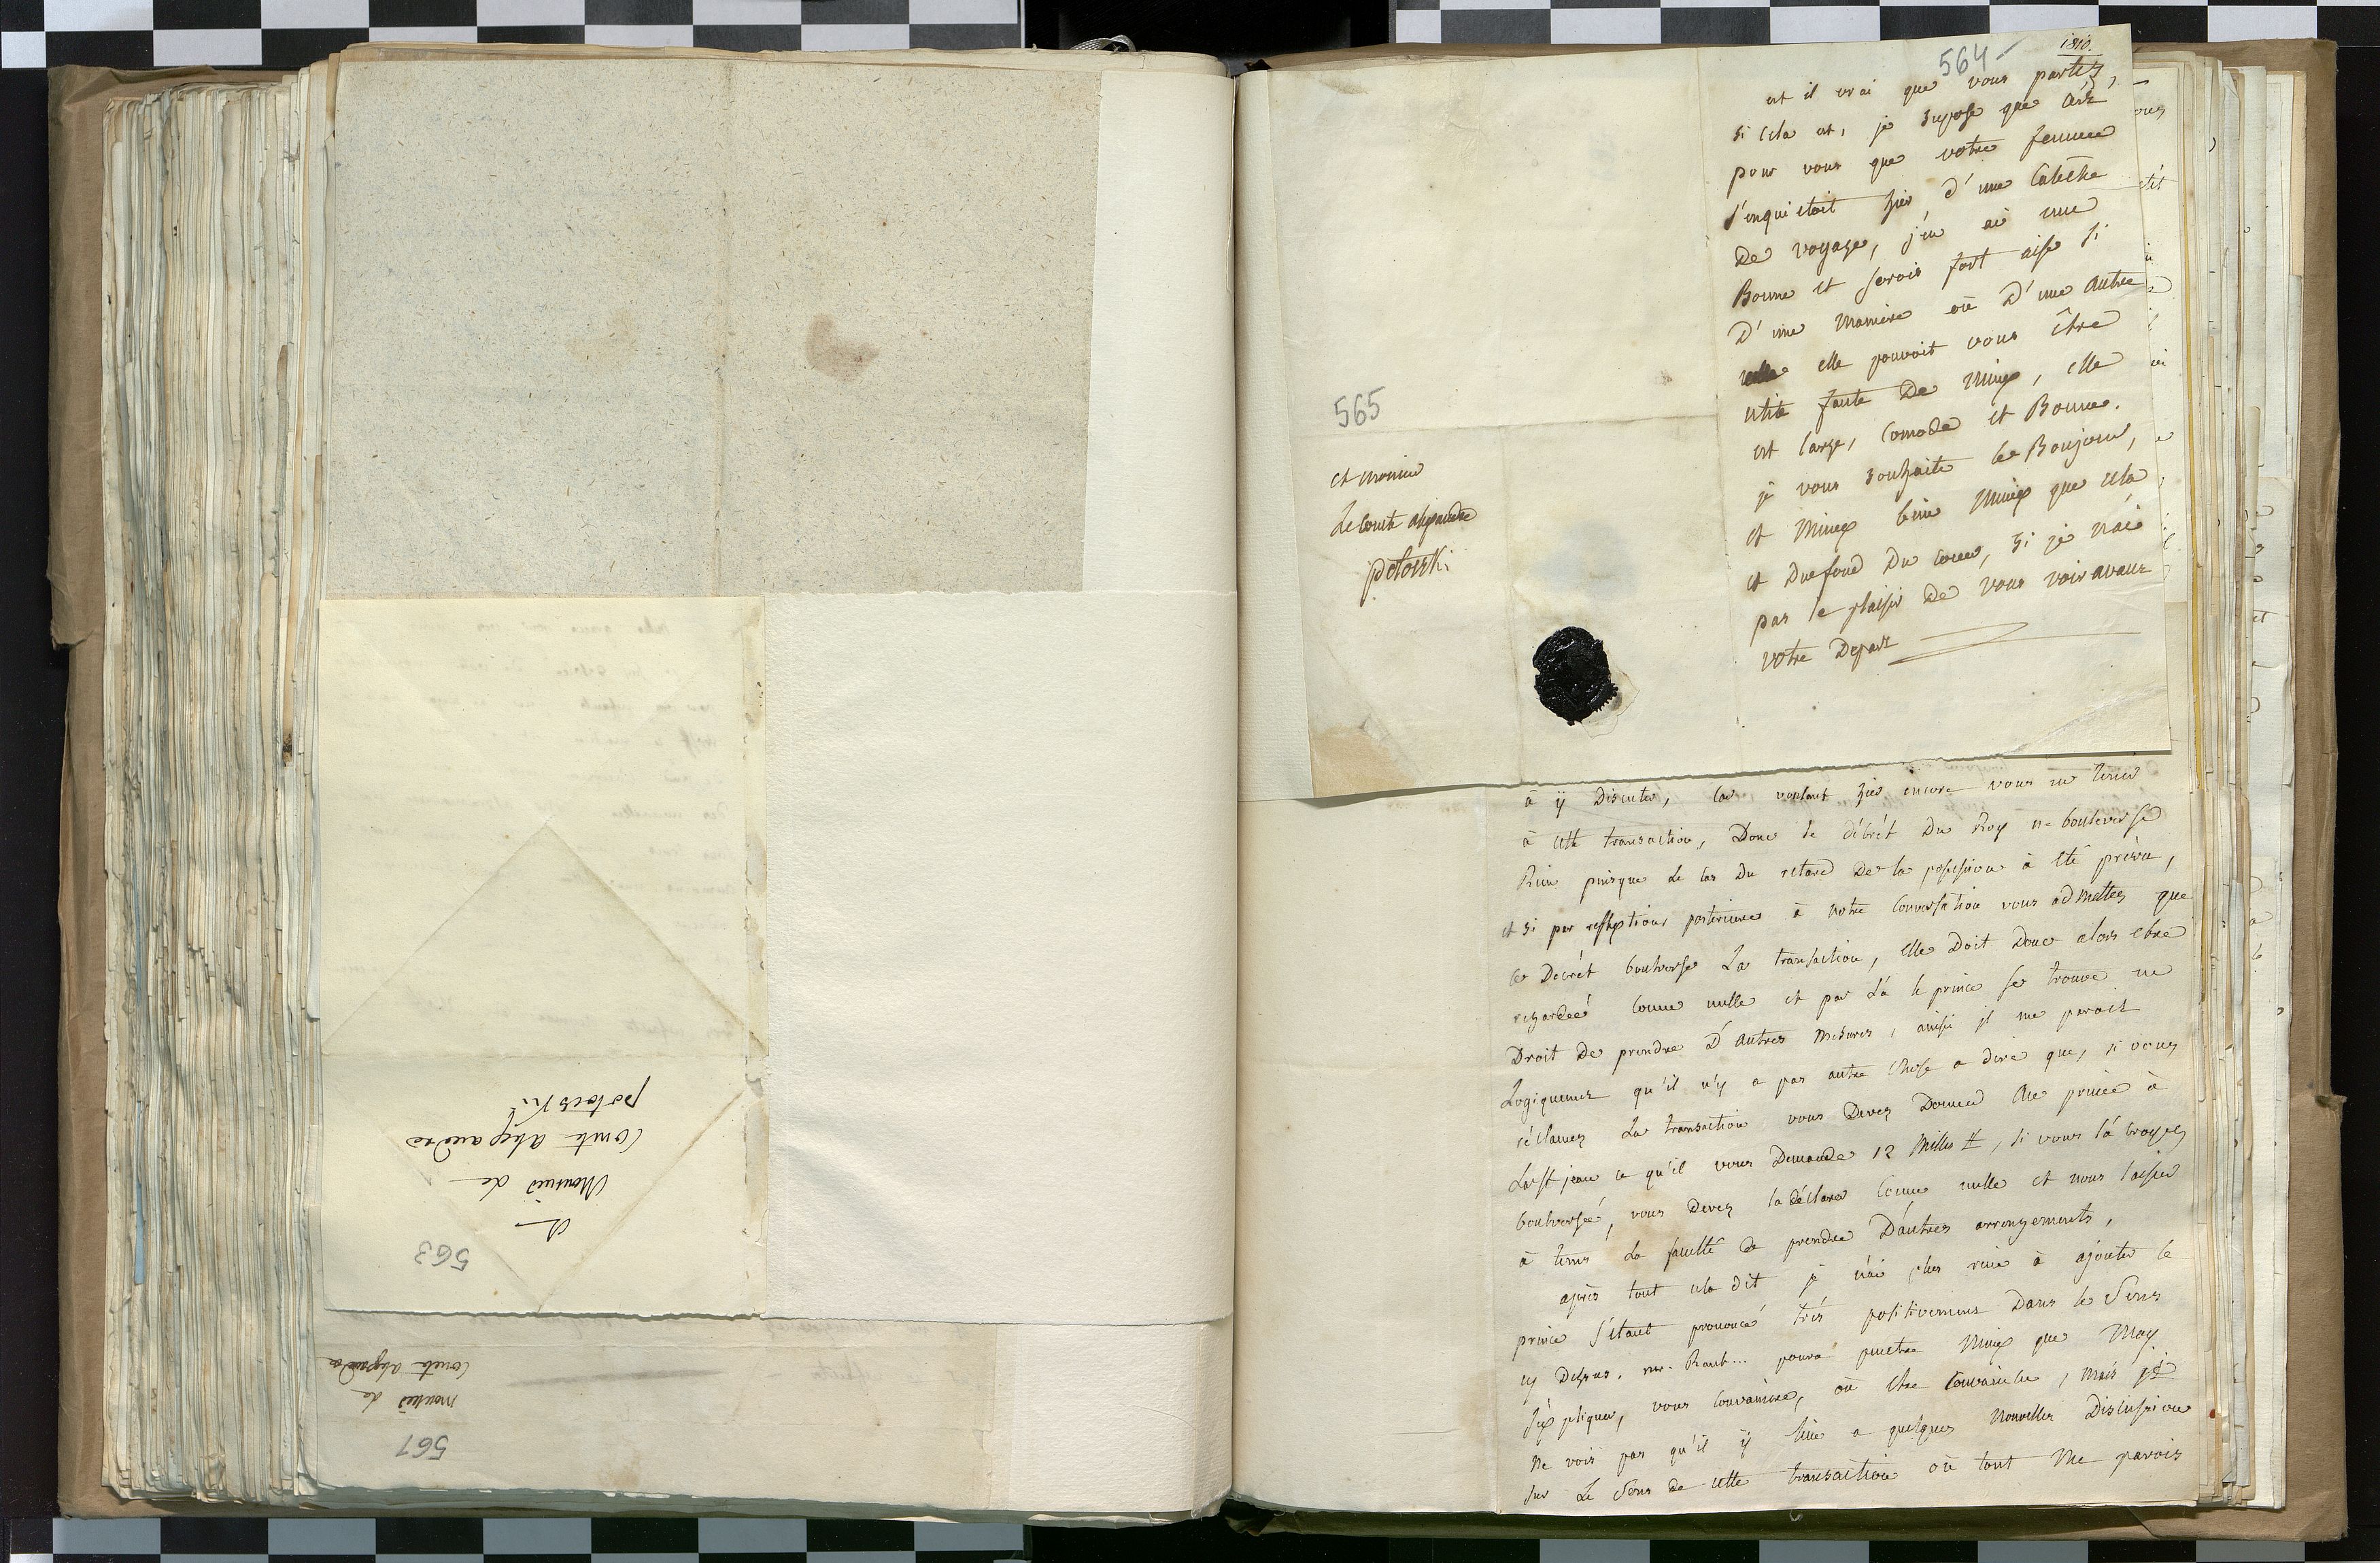 A
Monsieur le
Comte Alexandre
potocki
563
monsieur le
Comte Alexandre
561
564
1810.
est il vrai que vous partez,
si cela est, je supose que c'est
pour vous que votre femme
s'enquietoit hier d'une Caleche
de voyage, j'en ai une
Bonne et serois fort aise si
D'une maniere où D'une autre
elle pouvoit vous être
utile faute de mieux, elle
est large, comode et Bonne.
je vous souhaite le Bonjour,
et mieux bien mieux que cela
et du fond du coeur, si je n'ai
pas le plaisir de vous voir avant
votre Depart
565
et monsieur
Le Comte alexandre
potocki
à ÿ discuter, car voulant hier encore vous en tenir
à cette transaction, Donc le décrèt du Roy ne bouleverse
Rien puisque le cas du retard de la possession à été prèvu,
et si par reflextions posterieures à notre conversation vous admettez que
le Decrèt boulverse La transaction, elle doit donc alors etre
regardeé comme nulle et par là le prince se trouve en
Droit de prendre D'autres mesures, ainsi il me paroit
Logiquement qu'il n'y a pas autre chose a dire que, si vous
réclamez La transaction vous devez donner au prince à
La St jean ce qu'il vous demande 12 milles #, si vous la croyez
boulversée, vous devez la déclarer comme nulle et nous laisser
à tems la faculté de prendre D'autres arrengements,
après tout cela dit je n'ai plus rien à ajouter le
prince s'étant prononcé très positivement dans le sens
cy dessus. mr. Raut... poura peutetre mieux que Moy
s'expliquer, vous convaincre, où etre convaincu, mais je
ne vois pas qu'il ÿ lieu a quelques nouvelles Discussion
sur le sens de cette transaction où tout me parois